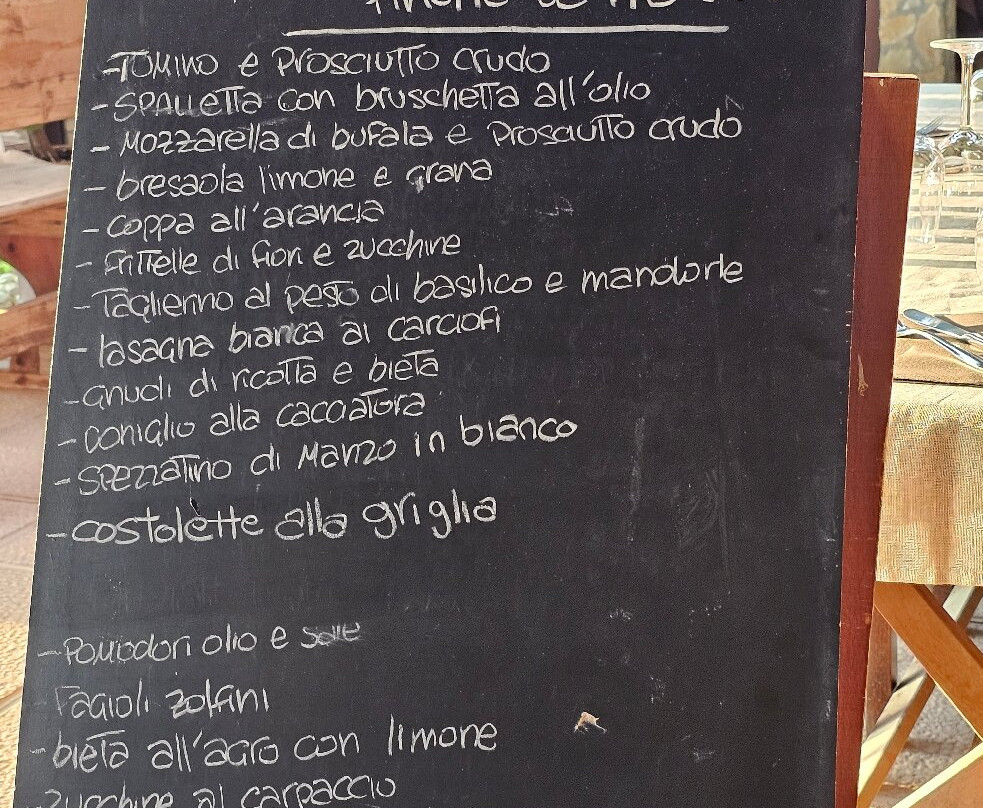 -TOMINO e PROSCIUTTO crudo
-SPALLETTA con bruschetta all'olio
- Mozzarella di bufala e PROSCIUTTO crudo
- bresaola limone e grana
- coppa all'arancia
- frittelle di fiori e zucchine
-Taglierino al pesto di basilico e mandorle
- lasagna bianca ai carciofi
-gnudi di ricotta e bieta
- coniglio alla cacciatora
- SPEZZATINO di Manzo in bianco
-costolette alla griglia
-Pomodori olio e sale
Fagioli zolfini
-bieta all'agro con limone
-zucchine al carpaccio